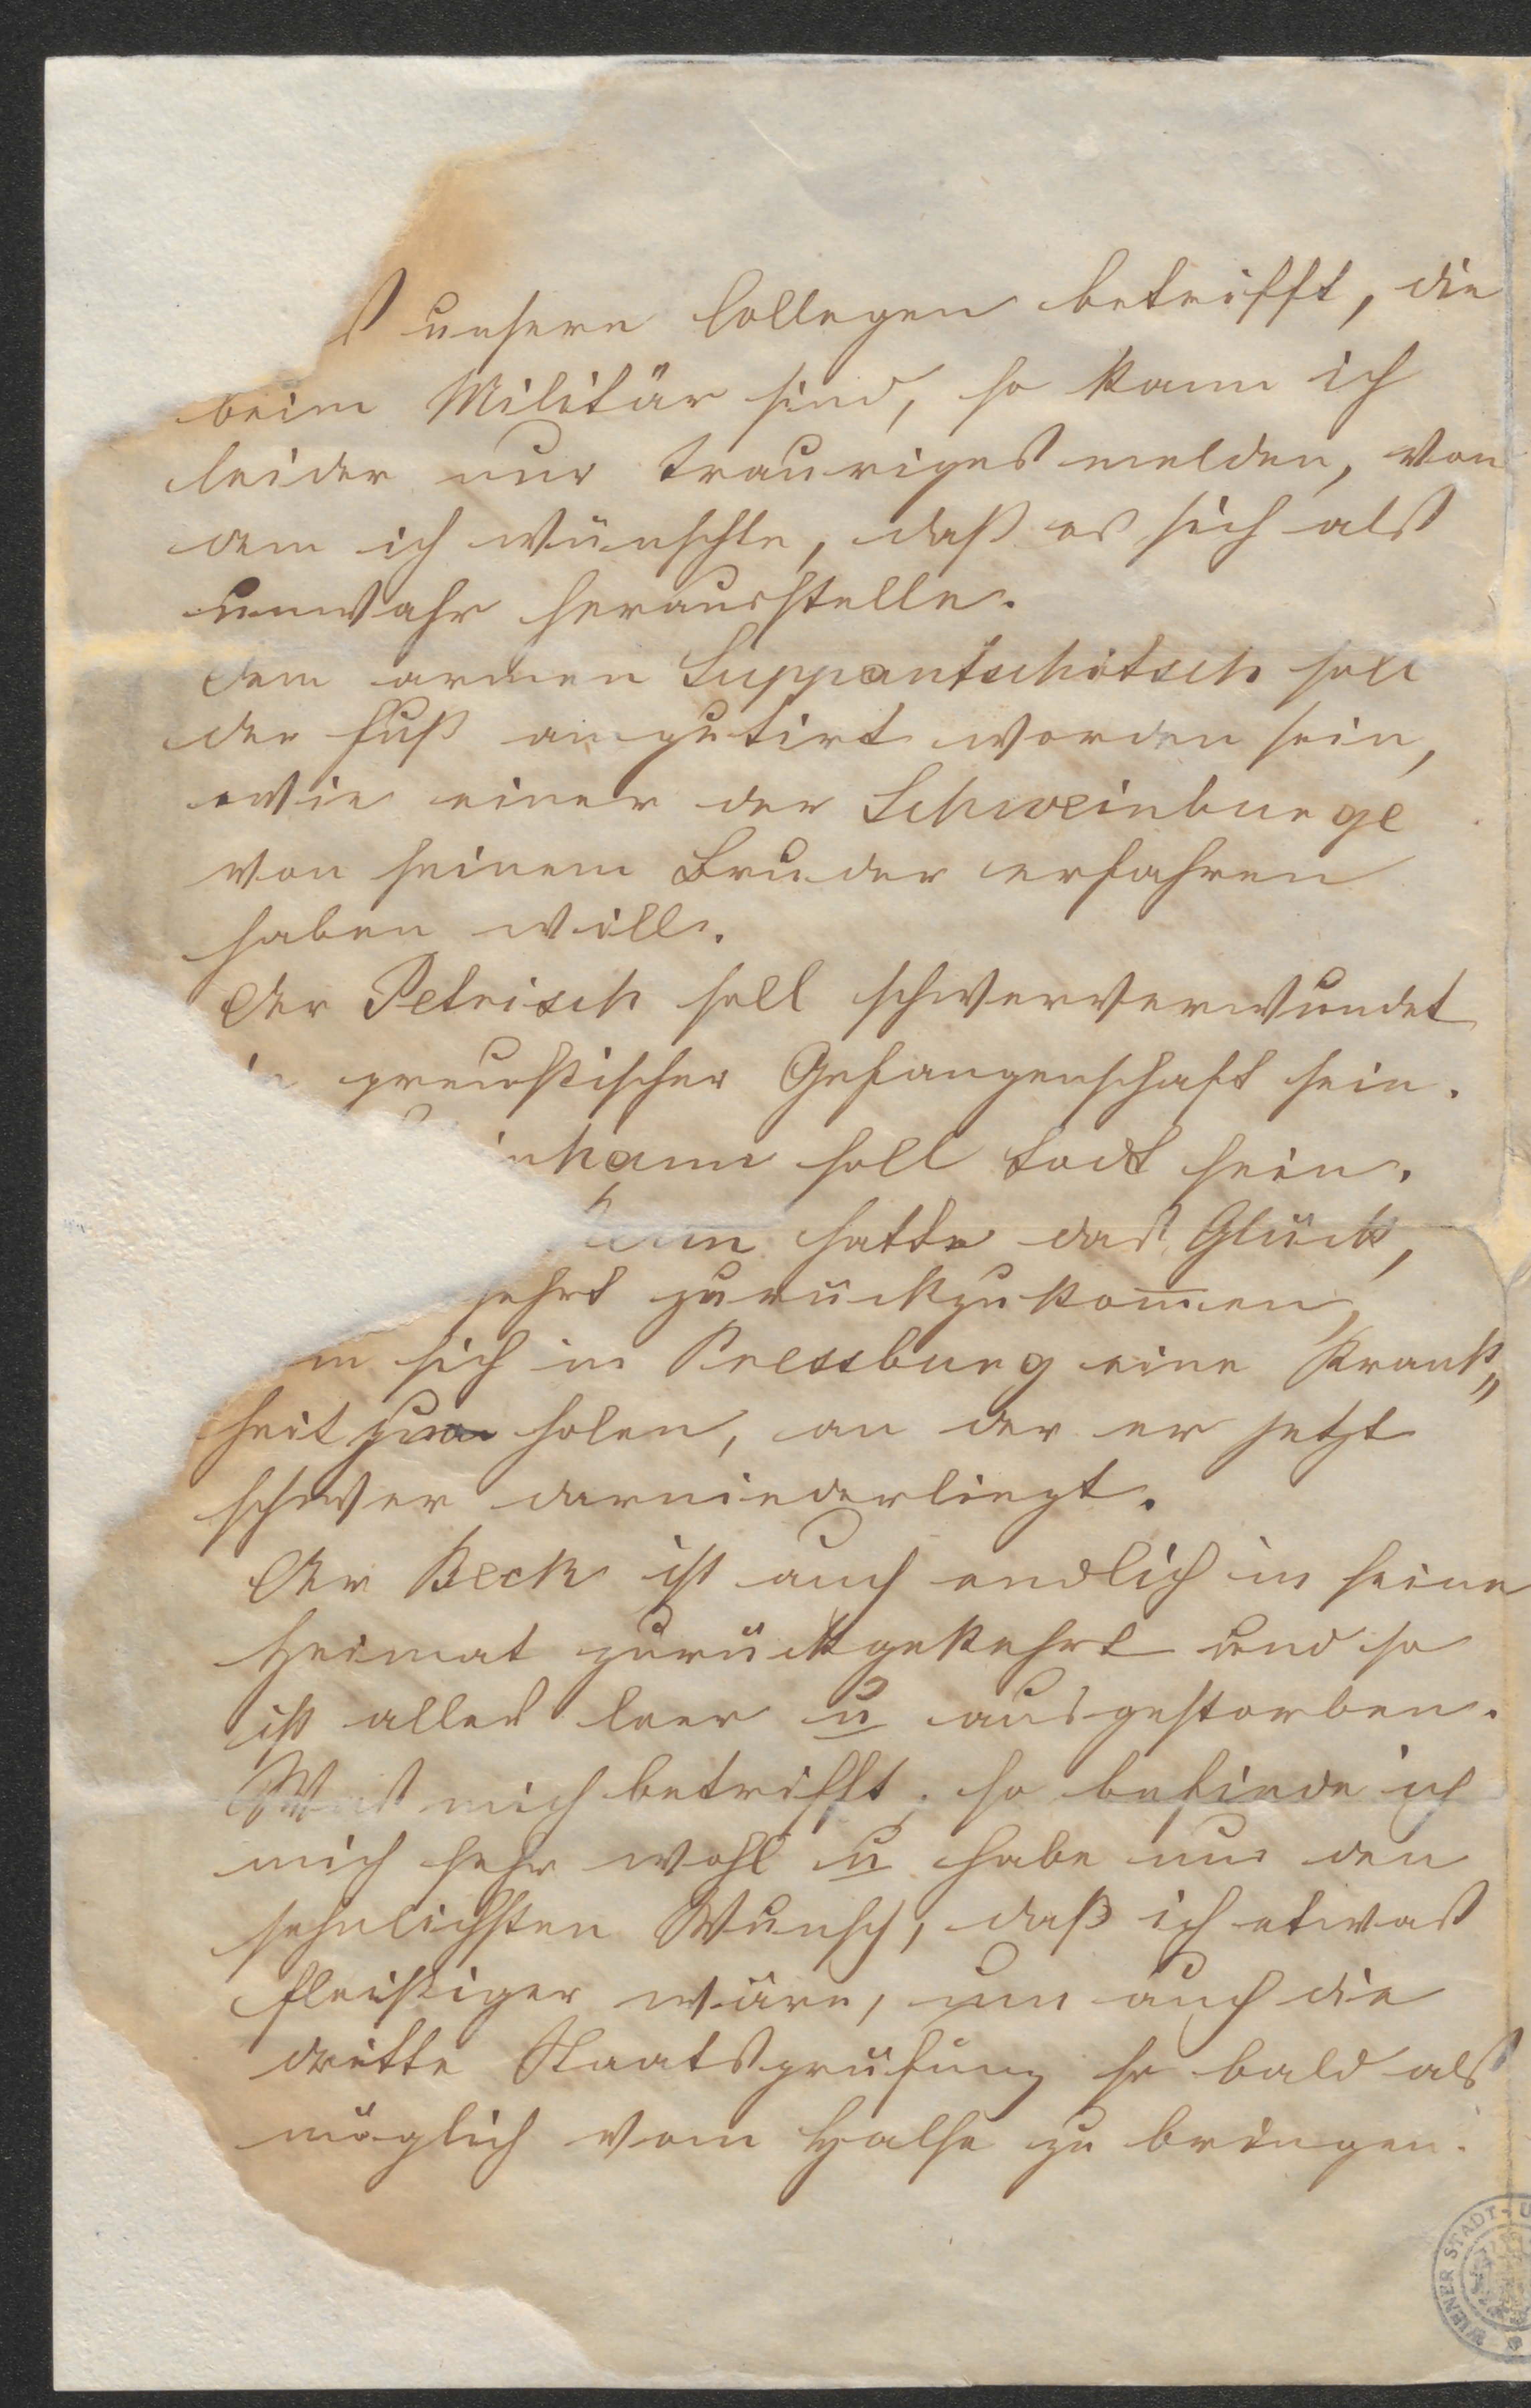 s unsere Collegen betrifft, die
beim Militär sind, so kann ich
leider nur trauriges melden, von
dem ich wünschte, daß es sich als
unwahr herausstelle.
Dem armen Suppantschitsch soll
der Fuß amputirt worden sein,
wie einer der Schweinburge
von seinem Bruder erfahren
haben will.
Der Petrisch soll schwerverwundet
in preussischer Gefangenschaft sein.
inhann soll todt sein.
hatte das Glück,
sehrt zurückzukommen,
m sich in Pressburg eine Krank„
heit zu holen, an der er jetzt
schwer darniederliegt.
Der Beck ist auch endlich in seine
Heimat zurückgekehrt und so
ist alles leer u ausgestorben.
Was mich betrifft, so befinde ich
mich sehr wohl u habe nur den
sehnlichsten Wunsch, daß ich etwas
fleißiger wäre, um auch die
dritte Staatsprüfung so bald als
möglich vom Halse zu bringen.
WIENER STADT-